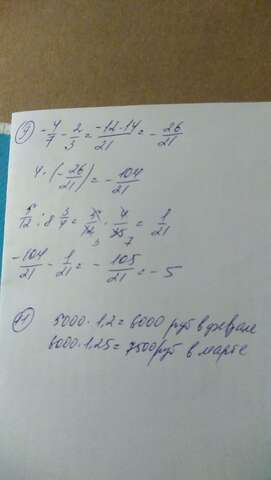 9) -4/7 - 2/3 = -12-14/21 = -26/21
4·(-26/21) = -104/21
5/12 : 8 3/4 = 5/12 · 4/35 = 1/21
3 7
-104/21 - 1/21 = -105/21 = -5
11) 5000·1,2 = 6000 руб в феврале
6000·1,25 = 7500 руб в марте